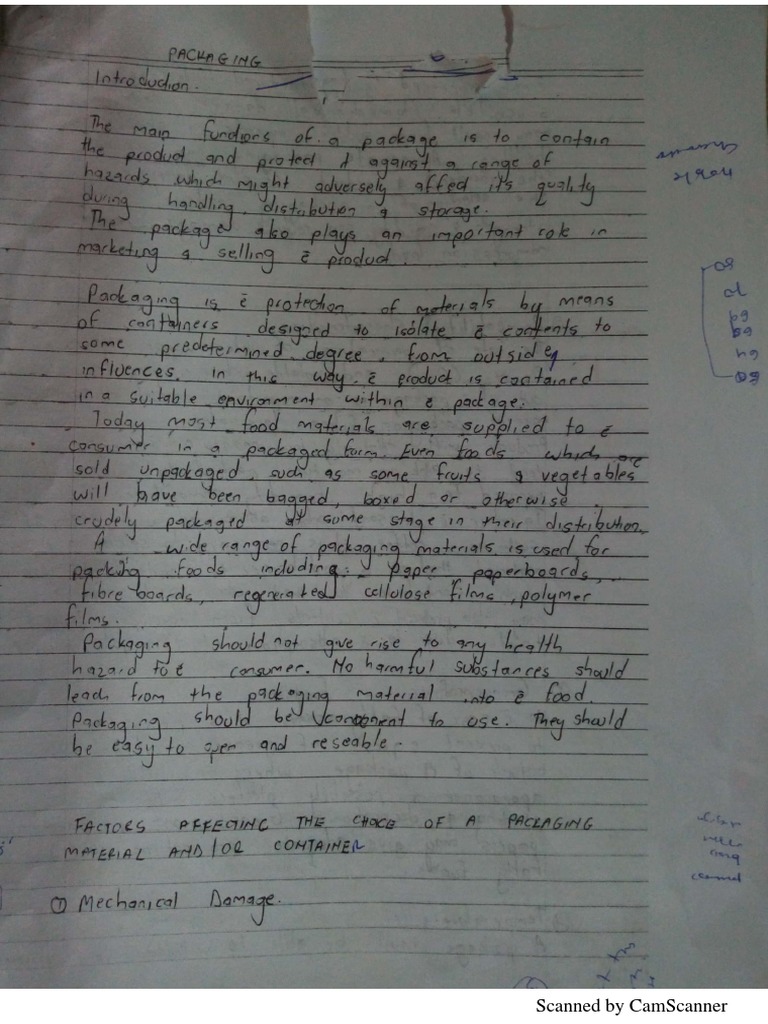 PACKAGING
Introduction.
The main functions of a package is to contain
the product and protect it against a range of
hazards which might adversely affect its quality
during handling, distribution & storage.
The package also plays an important role in
marketing & selling ē product.
Packaging is ē protection of materials by means
of containers designed to isolate ē contents to
some predetermined degree, from outside
influences. In this way, ē product is contained
in a suitable environment within ē package.
Today most food materials are supplied to ē
consumer in a packaged form. Even foods which are
sold unpackaged, such as some fruits & vegetables
will have been bagged, boxed or otherwise
crudely packaged at some stage in their distribution.
A wide range of packaging materials is used for
packing foods including: paper paperboards,
fibre boards, regenerated cellulose films, polymer
films.
Packaging should not give rise to any health
hazard to ē consumer. No harmful substances should
leach from the packaging material into ē food.
Packaging should be to use. They should
be easy to open and reseable.
FACTORS AFFECTING THE CHOICE OF A PACKAGING
MATERIAL AND/OR CONTAINER
① Mechanical Damage.
Scanned by CamScanner